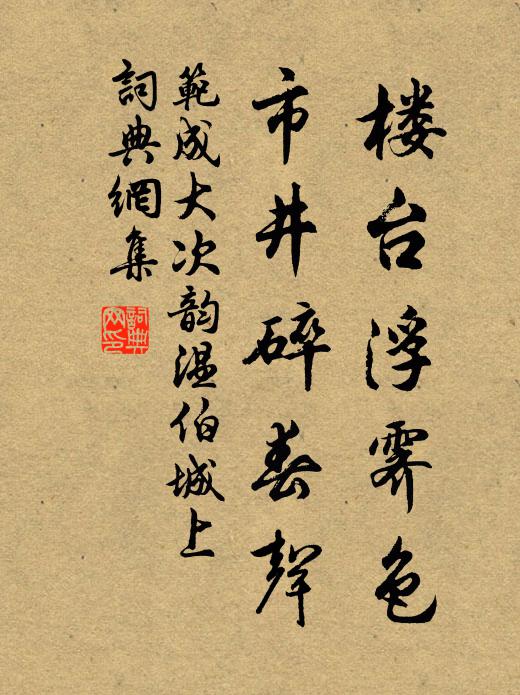 楼台浮霁色
市井碎春聲
範成大次韵温伯城上
詞典網集
詞典網印